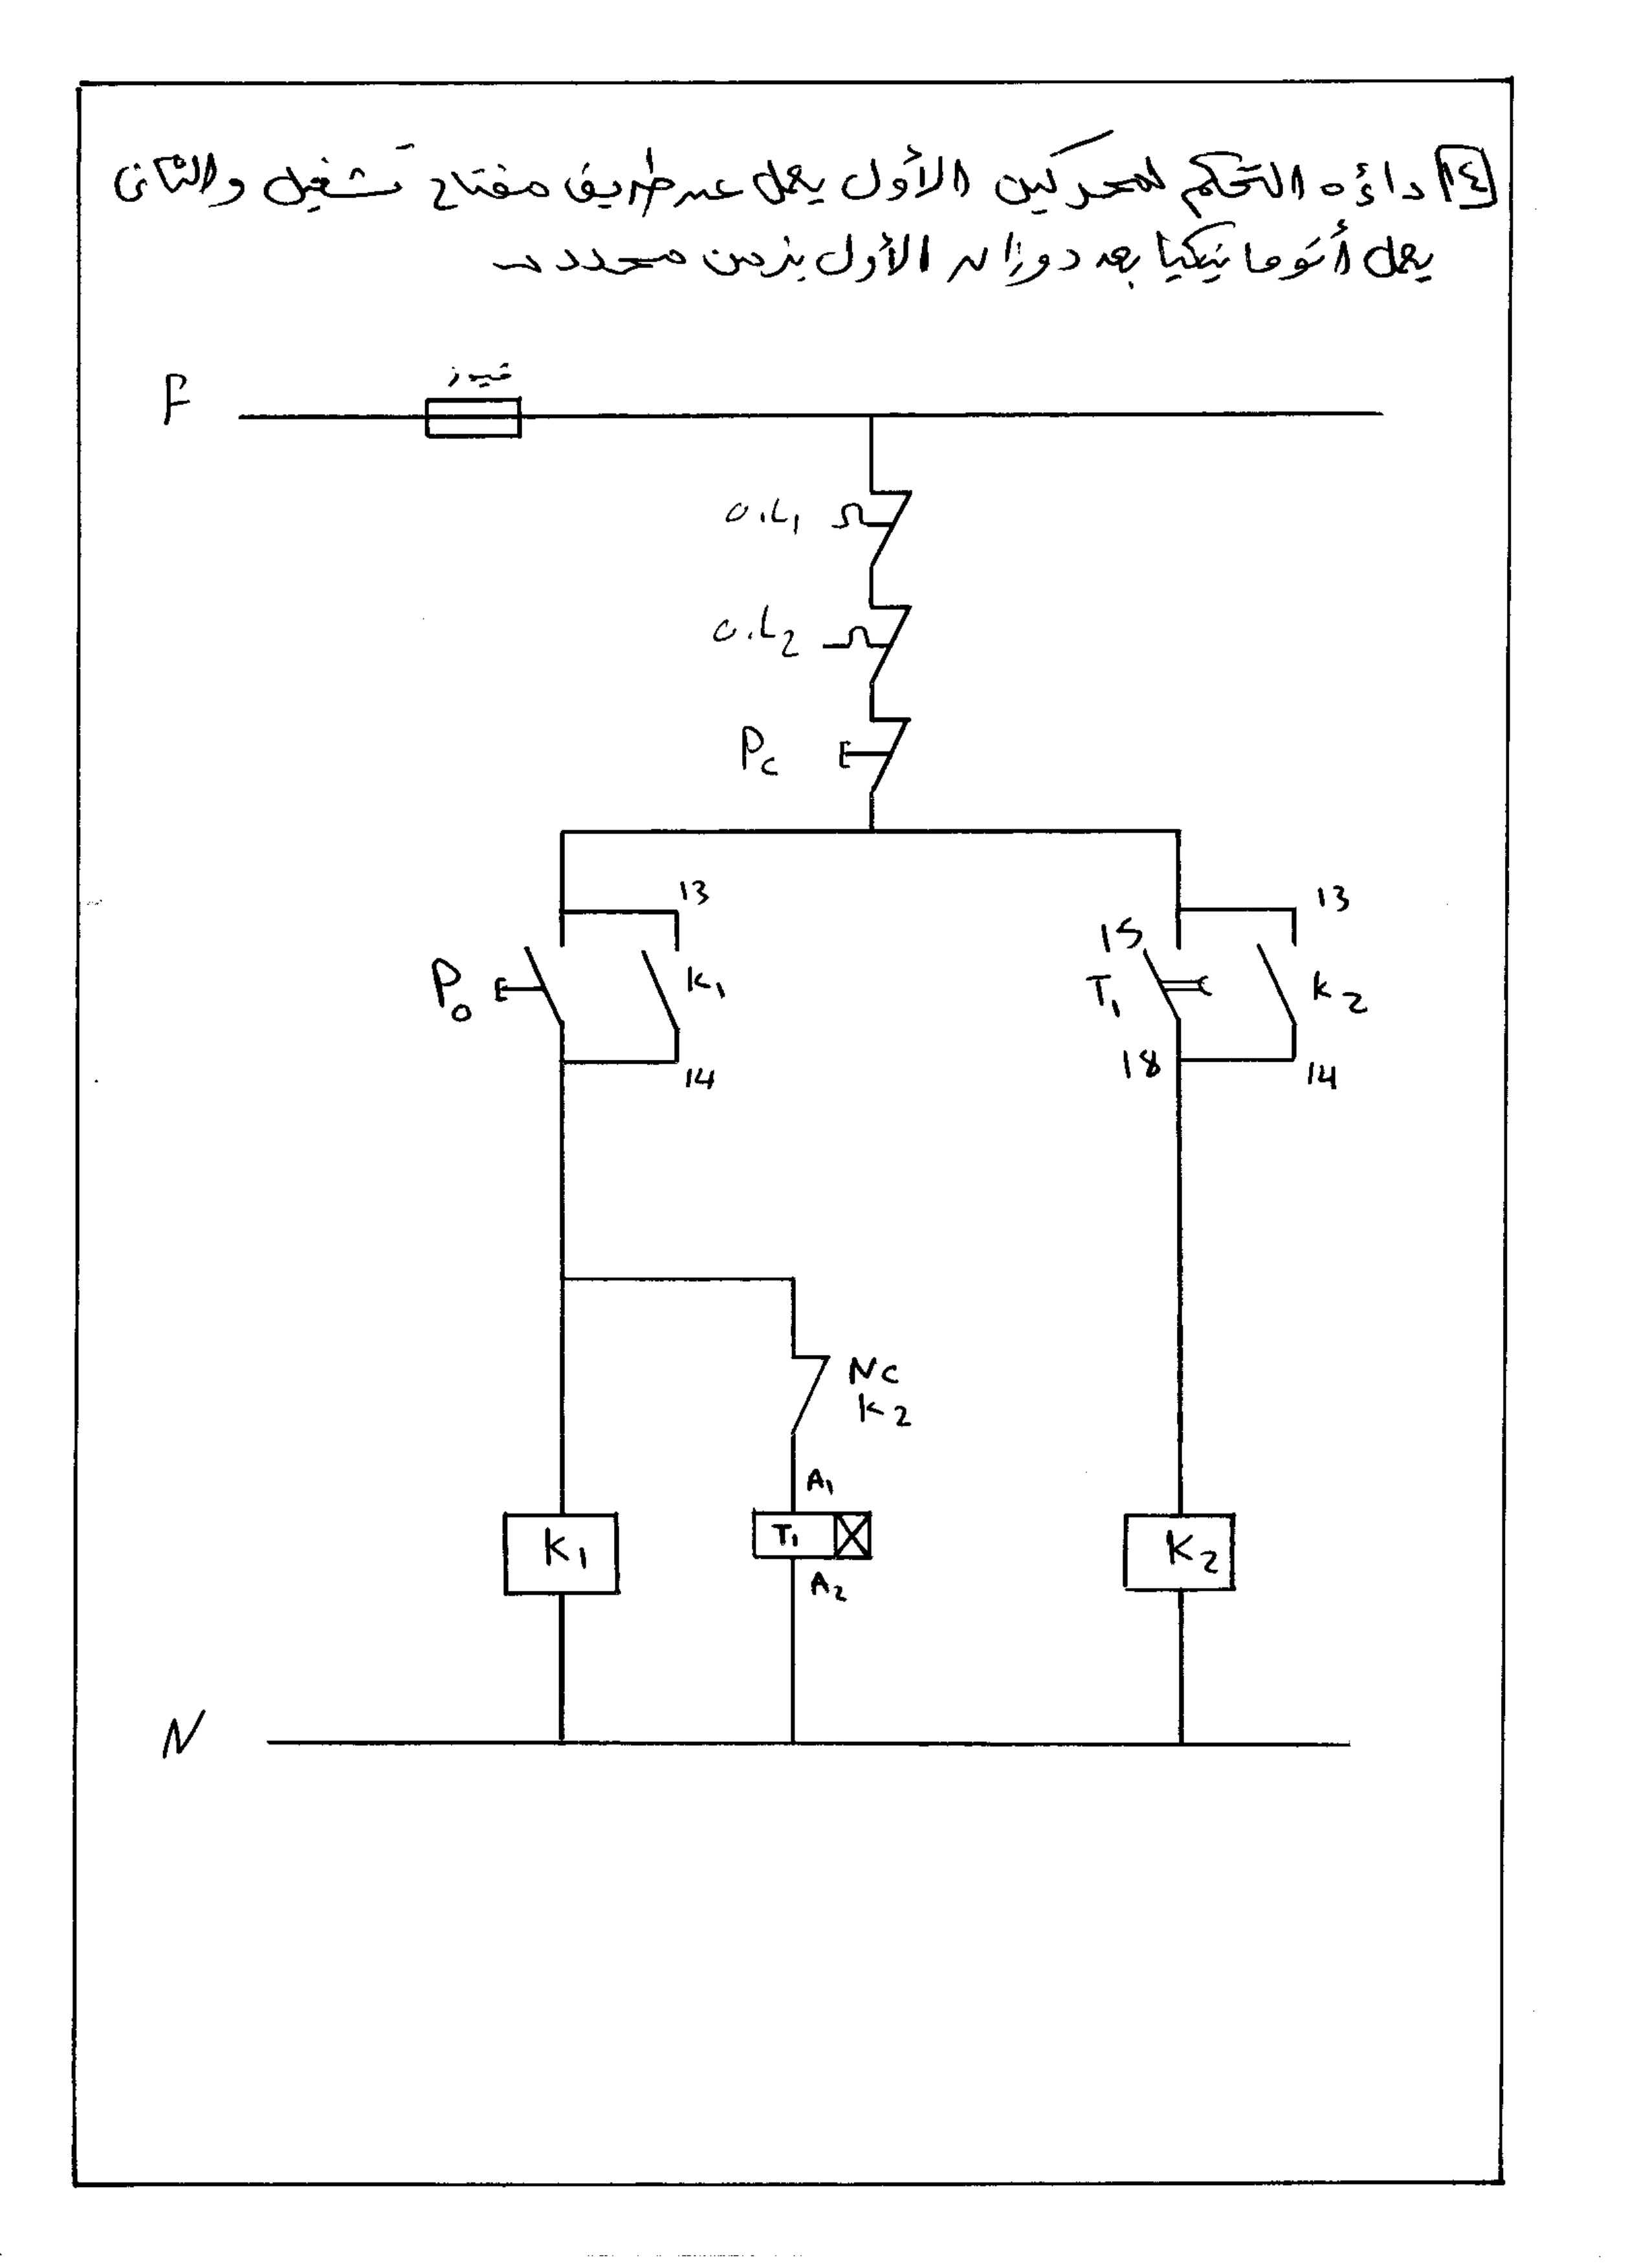 ١٤ دائره التحكم لمحركين الأول يعمل عن طريق مفتاح تشغيل والثانى
يعمل أتوماتيكيا بعد دوران الأول بزمن محدد
فيوز
F
O.L1
O.L2
Pc
13
13
15
Po
K1
T1
K2
14
18
14
NC
K2
A1
K1
T1
K2
A2
N